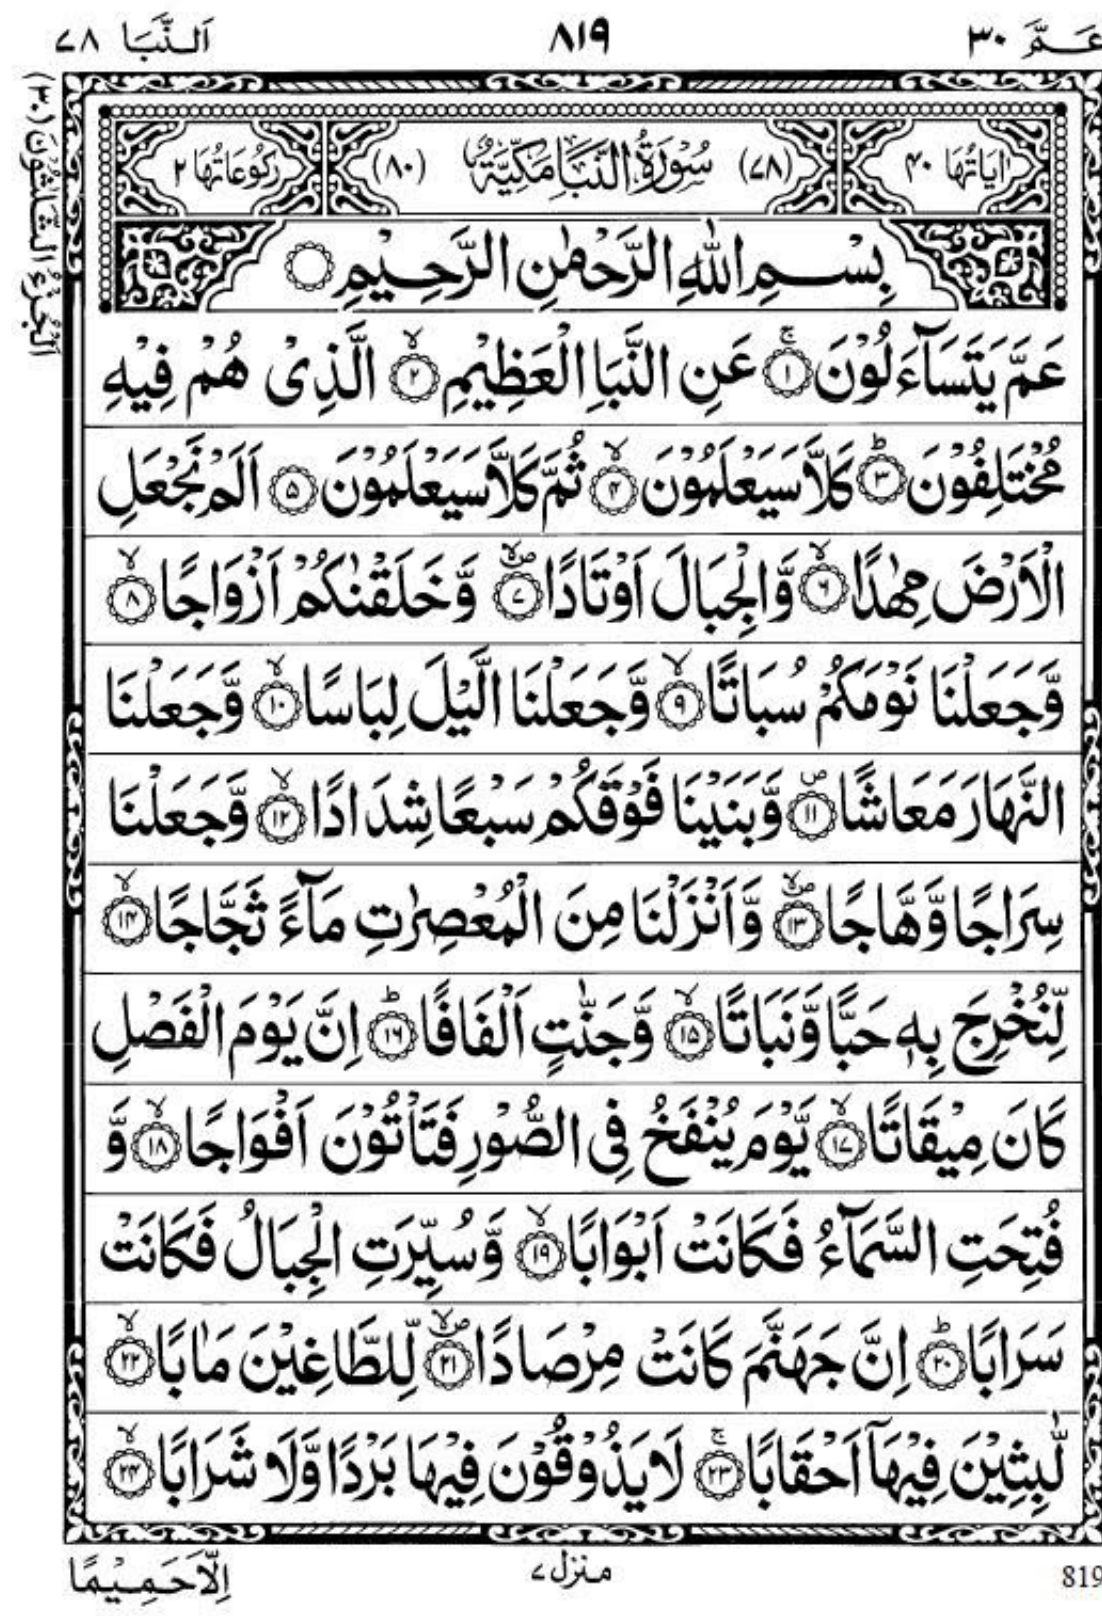 عَمَّ ٣٠ ٨١٩ اَلنَّبَا ٧٨
اٰيَاتُهَا ٤٠ (٧٨) سُوْرَةُ النَّبَاِ مَكِّيَّةٌ (٨٠) رُكُوْعَاتُهَا ٢
اَلْجُزْءُ الثَّلَاثُوْنَ (٣٠)
بِسْمِ اللّٰهِ الرَّحْمٰنِ الرَّحِيْمِ
عَمَّ يَتَسَآءَلُوْنَ ۚ‏﴿۱﴾ عَنِ النَّبَاِ الْعَظِيْمِ ۙ‏﴿۲﴾ الَّذِىْ هُمْ فِيْهِ
مُخْتَلِفُوْنَ ؕ‏﴿۳﴾ كَلَّا سَيَعْلَمُوْنَ ۙ‏﴿۴﴾ ثُمَّ كَلَّا سَيَعْلَمُوْنَ‏﴿۵﴾ اَلَمْ نَجْعَلِ
الْاَرْضَ مِهٰدًا ۙ‏﴿۶﴾ وَّالْجِبَالَ اَوْتَادًا ۪ۙ‏﴿۷﴾ وَّخَلَقْنٰكُمْ اَزْوَاجًا ۙ‏﴿۸﴾
وَّجَعَلْنَا نَوْمَكُمْ سُبَاتًا ۙ‏﴿۹﴾ وَّجَعَلْنَا الَّيْلَ لِبَاسًا ۙ‏﴿۱۰﴾ وَّجَعَلْنَا
النَّهَارَ مَعَاشًا ۪‏﴿۱۱﴾ وَّبَنَيْنَا فَوْقَكُمْ سَبْعًا شِدَادًا ۙ‏﴿۱۲﴾ وَّجَعَلْنَا
سِرَاجًا وَّهَّاجًا ۪ۙ‏﴿۱۳﴾ وَّاَنْزَلْنَا مِنَ الْمُعْصِرٰتِ مَآءً ثَجَّاجًا ۙ‏﴿۱۴﴾
لِّنُخْرِجَ بِهٖ حَبًّا وَّنَبَاتًا ۙ‏﴿۱۵﴾ وَّجَنّٰتٍ اَلْفَافًا ؕ‏﴿۱۶﴾ اِنَّ يَوْمَ الْفَصْلِ
كَانَ مِيْقَاتًا ۙ‏﴿۱۷﴾ يَّوْمَ يُنْفَخُ فِى الصُّوْرِ فَتَاْتُوْنَ اَفْوَاجًا ۙ‏﴿۱۸﴾ وَّ
فُتِحَتِ السَّمَآءُ فَكَانَتْ اَبْوَابًا ۙ‏﴿۱۹﴾ وَّسُيِّرَتِ الْجِبَالُ فَكَانَتْ
سَرَابًا ؕ‏﴿۲۰﴾ اِنَّ جَهَنَّمَ كَانَتْ مِرْصَادًا ۪ۙ‏﴿۲۱﴾ لِّلطَّاغِيْنَ مَاٰبًا ۙ‏﴿۲۲﴾
لّٰبِثِيْنَ فِيْهَآ اَحْقَابًا ۚ‏﴿۲۳﴾ لَا يَذُوْقُوْنَ فِيْهَا بَرْدًا وَّلَا شَرَابًا ۙ‏﴿۲۴﴾
819 منزل ٧ اِلَّا حَمِيْمًا